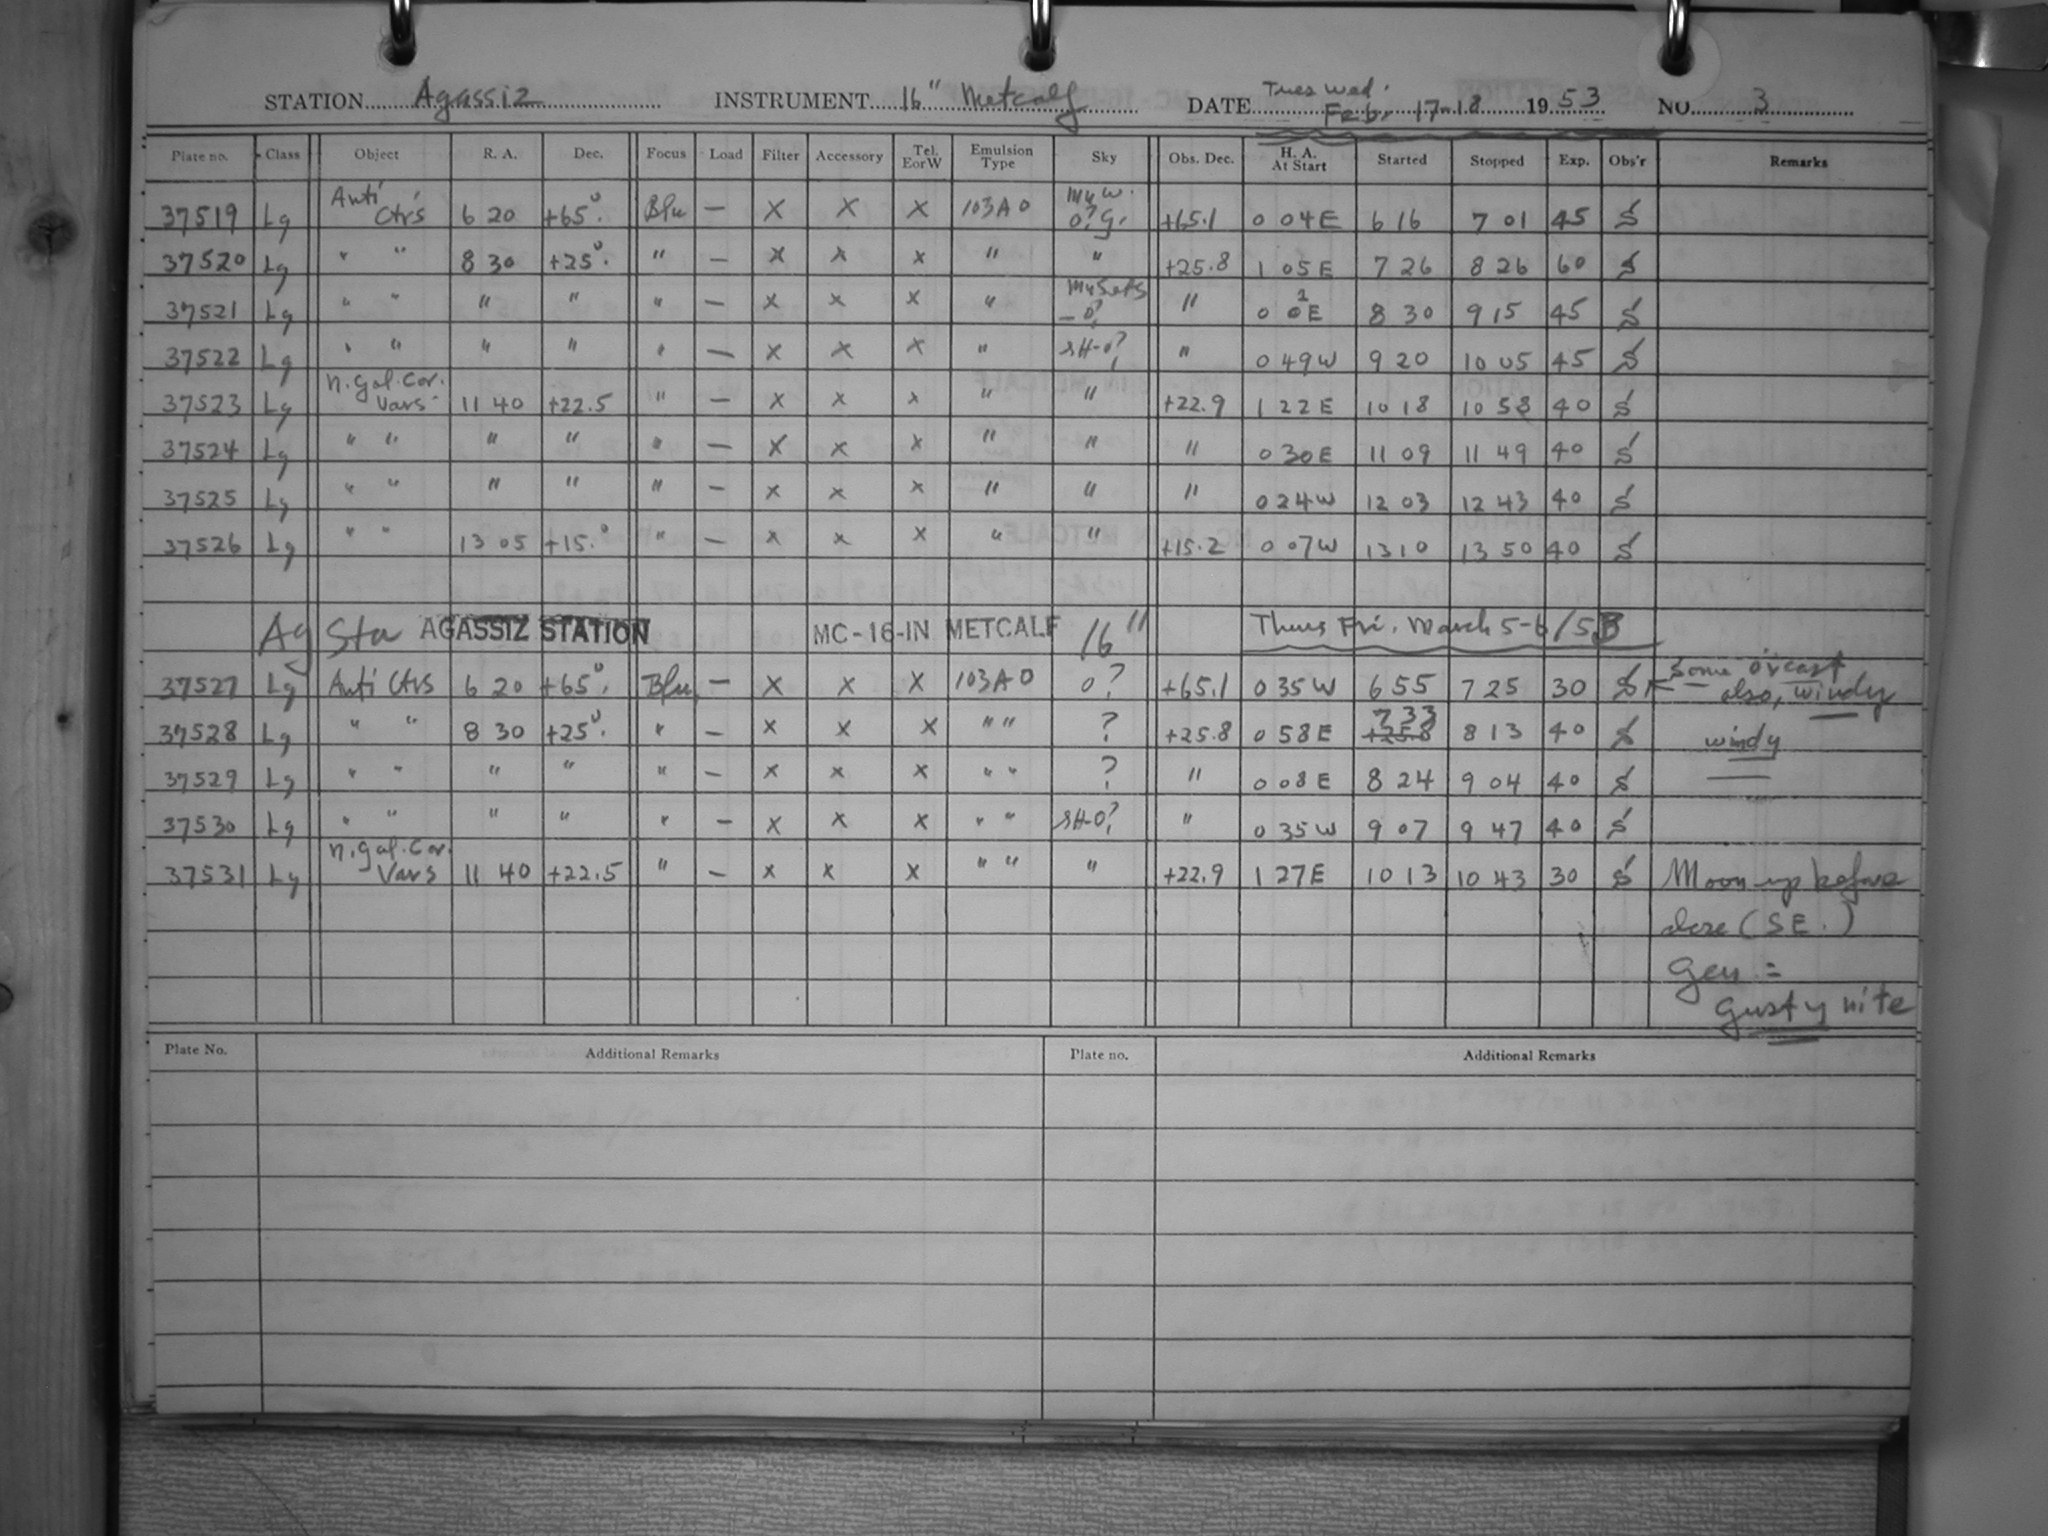 Tues Wed.
STATION Agassiz INSTRUMENT 16" Metcalf DATE Feb. 17-18 1953 NO. 3
Plate no. Class Object R. A. Dec. Focus Load Filter Accessory Tel. EorW Emulsion Type Sky Obs. Dec. H. A. At Start Started Stopped Exp. Obs'r Remarks
37519 Lg Anti Ctrs 6 20 +65°. Blu — X X X 103A0 o? g. +65.1 0 04 E 6 16 7 01 45 S
37520 Lg " " 8 30 +25°. " — X X X " " +25.8 1 05 E 7 26 8 26 60 S
37521 Lg " " " " " — X X X " Sets — o? " 0 02 E 8 30 9 15 45 S
37522 Lg " " " " " — X X X " SH-o? " 0 49 W 9 20 10 05 45 S
37523 Lg n. gal. Cor. Vars 11 40 +22.5 " — X X X " " +22.9 1 22 E 10 18 10 58 40 S
37524 Lg " " " " " — X X X " " " 0 30 E 11 09 11 49 40 S
37525 Lg " " " " " — X X X " " " 0 24 W 12 03 12 43 40 S
37526 Lg " " 13 05 +15.° " — X X X " " +15.2 0 07 W 13 10 13 50 40 S
Ag Sta AGASSIZ STATION MC-16-IN METCALF 16" Thurs Fri. March 5-6/53
37527 Lg Anti Ctrs 6 20 +65°. Blu — X X X 103A0 o? +65.1 0 35 W 6 55 7 25 30 S Some o'cast also, windy
37528 Lg " " 8 30 +25°. " — X X X " " ? +25.8 0 58 E +25.8 7 33 8 13 40 S windy
37529 Lg " " " " " — X X X " " ? " 0 08 E 8 24 9 04 40 S —
37530 Lg " " " " " — X X X " " SH-o? " 0 35 W 9 07 9 47 40 S
37531 Lg n. gal. Cor. Vars 11 40 +22.5 " — X X X " " " +22.9 1 27 E 10 13 10 43 30 S Moon up before
close (SE.)
Gen =
gusty nite
Plate No. Additional Remarks Plate no. Additional Remarks